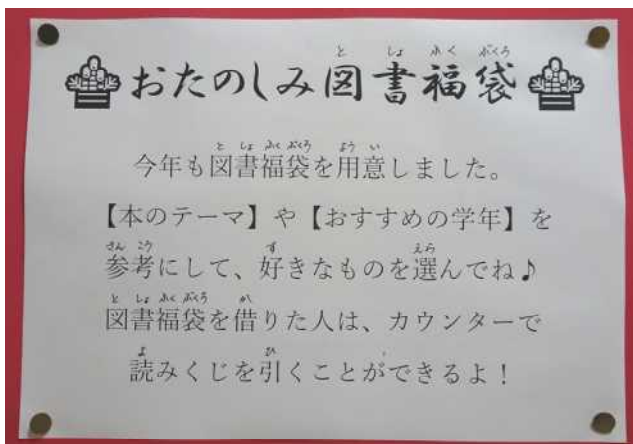 おたのしみ図書福袋
今年も図書福袋を用意しました。
【本のテーマ】や【おすすめの学年】を
参考にして、好きなものを選んでね♪
図書福袋を借りた人は、カウンターで
読みくじを引くことができるよ！